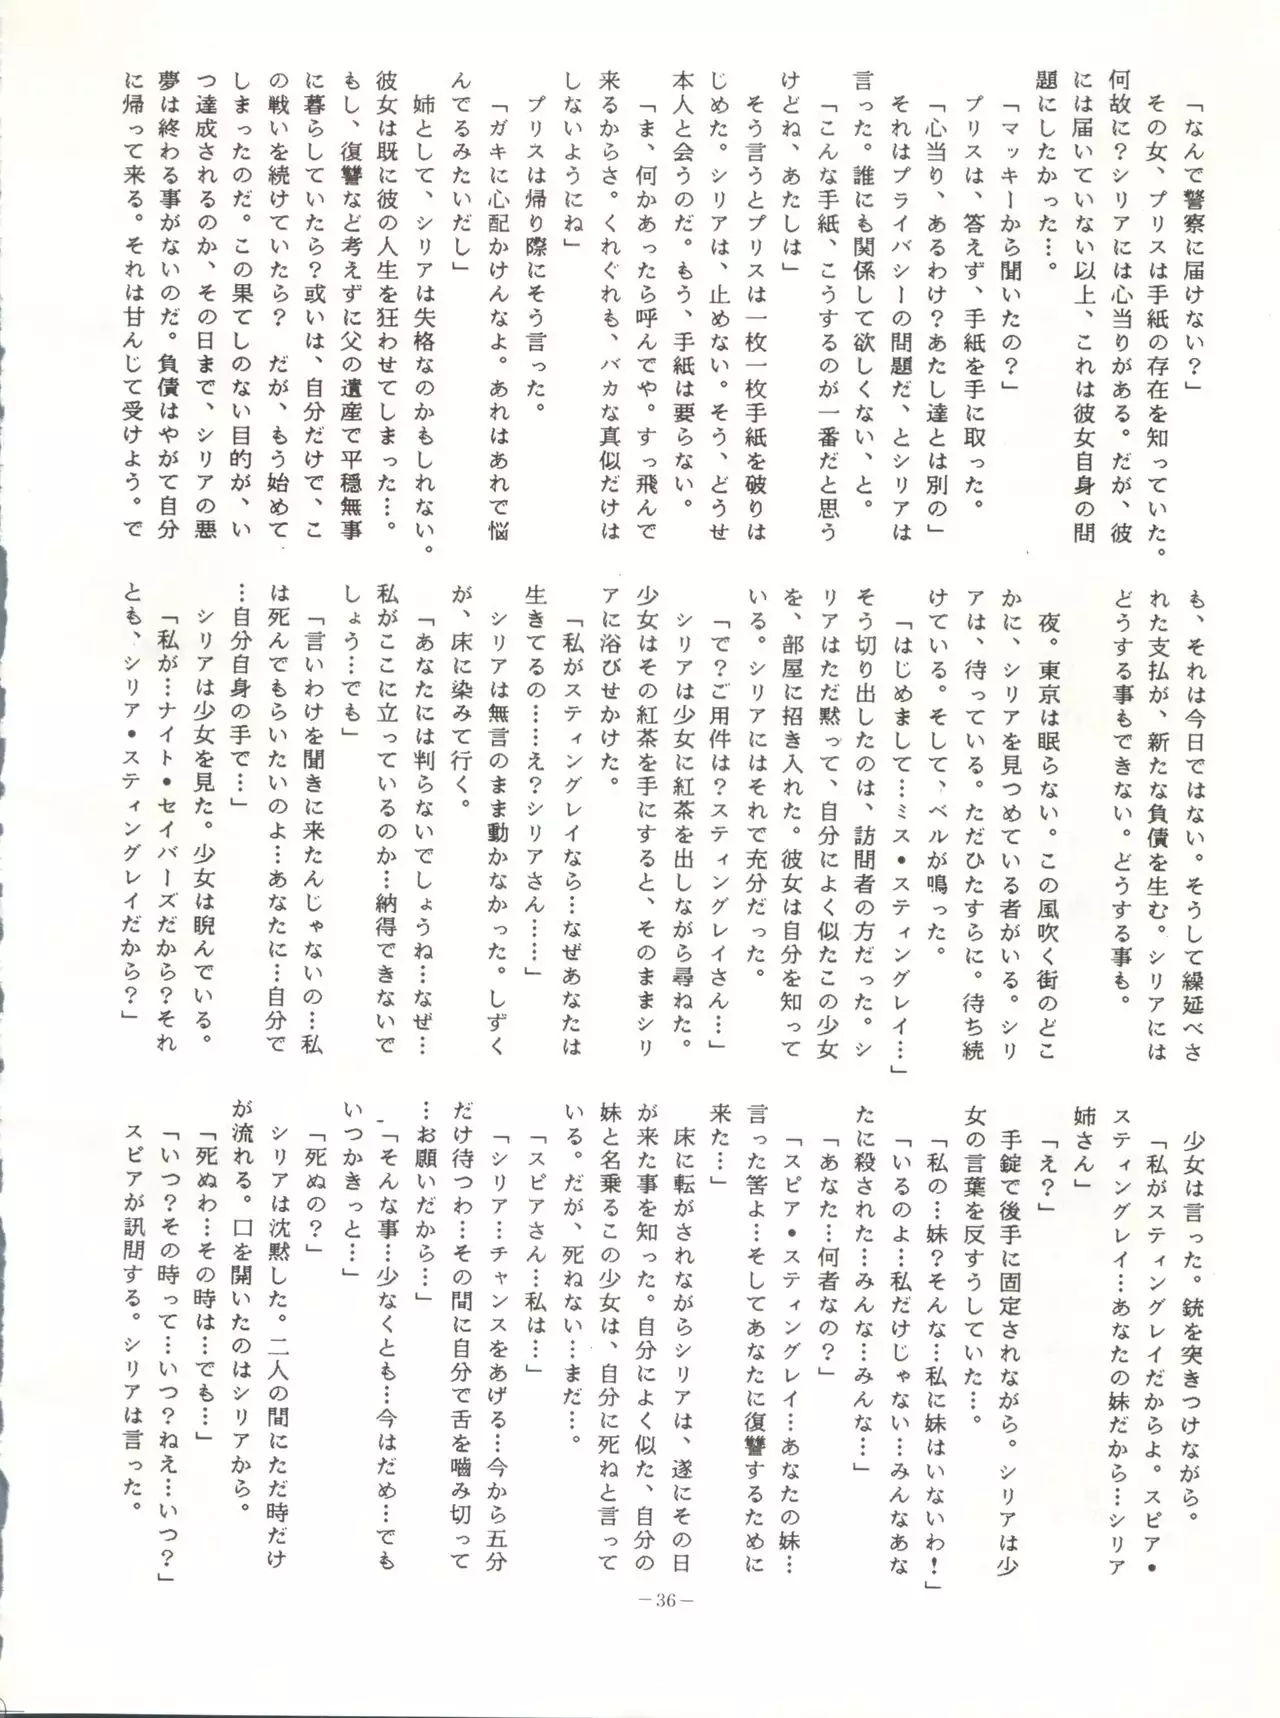 「なんで警察に届けない？」
その女、プリスは手紙の存在を知っていた。
何故に？シリアには心当りがある。だが、彼
には届いていない以上、これは彼女自身の問
題にしたかった…。
「マッキーから聞いたの？」
プリスは、答えず、手紙を手に取った。
「心当り、あるわけ？あたし達とは別の」
それはプライバシーの問題だ、とシリアは
言った。誰にも関係して欲しくない、と。
「こんな手紙、こうするのが一番だと思う
けどね、あたしは」
そう言うとプリスは一枚一枚手紙を破りは
じめた。シリアは、止めない。そう、どうせ
本人と会うのだ。もう、手紙は要らない。
「ま、何かあったら呼んでや。すっ飛んで
来るからさ。くれぐれも、バカな真似だけは
しないようにね」
プリスは帰り際にそう言った。
「ガキに心配かけんなよ。あれはあれで悩
んでるみたいだし」
姉として、シリアは失格なのかもしれない。
彼女は既に彼の人生を狂わせてしまった…。
もし、復讐など考えずに父の遺産で平穏無事
に暮らしていたら？或いは、自分だけで、こ
の戦いを続けていたら？　だが、もう始めて
しまったのだ。この果てしのない目的が、い
つ達成されるのか、その日まで、シリアの悪
夢は終わる事がないのだ。負債はやがて自分
に帰って来る。それは甘んじて受けよう。で
も、それは今日ではない。そうして繰延べさ
れた支払が、新たな負債を生む。シリアには
どうする事もできない。どうする事も。
夜。東京は眠らない。この風吹く街のどこ
かに、シリアを見つめている者がいる。シリ
アは、待っている。ただひたすらに。待ち続
けている。そして、ベルが鳴った。
「はじめまして…ミス・スティングレイ…」
そう切り出したのは、訪問者の方だった。シ
リアはただ黙って、自分によく似たこの少女
を、部屋に招き入れた。彼女は自分を知って
いる。シリアにはそれで充分だった。
「で？ご用件は？スティングレイさん…」
シリアは少女に紅茶を出しながら尋ねた。
少女はその紅茶を手にすると、そのままシリ
アに浴びせかけた。
「私がスティングレイなら…なぜあなたは
生きてるの……え？シリアさん……」
シリアは無言のまま動かなかった。しずく
が、床に染みて行く。
「あなたには判らないでしょうね…なぜ…
私がここに立っているのか…納得できないで
しょう…でも」
「言いわけを聞きに来たんじゃないの…私
は死んでもらいたいのよ…あなたに…自分で
…自分自身の手で…」
シリアは少女を見た。少女は睨んでいる。
「私が…ナイト・セイバーズだから？それ
とも、シリア・スティングレイだから？」
少女は言った。銃を突きつけながら。
「私がスティングレイだからよ。スピア・
スティングレイ…あなたの妹だから…シリア
姉さん」
「え？」
手錠で後手に固定されながら。シリアは少
女の言葉を反すうしていた…。
「私の…妹？そんな…私に妹はいないわ！」
「いるのよ…私だけじゃない…みんなあな
たに殺された…みんな…みんな…」
「あなた…何者なの？」
「スピア・スティングレイ…あなたの妹…
言った筈よ…そしてあなたに復讐するために
来た…」
床に転がされながらシリアは、遂にその日
が来た事を知った。自分によく似た、自分の
妹と名乗るこの少女は、自分に死ねと言って
いる。だが、死ねない…まだ…。
「スピアさん…私は…」
「シリア…チャンスをあげる…今から五分
だけ待つわ…その間に自分で舌を噛み切って
…お願いだから…」
「そんな事…少なくとも…今はだめ…でも
いつかきっと…」
「死ぬの？」
シリアは沈黙した。二人の間にただ時だけ
が流れる。口を開いたのはシリアから。
「死ぬわ…その時は…でも…」
「いつ？その時って…いつ？ねえ…いつ？」
スピアが訊問する。シリアは言った。
—36—